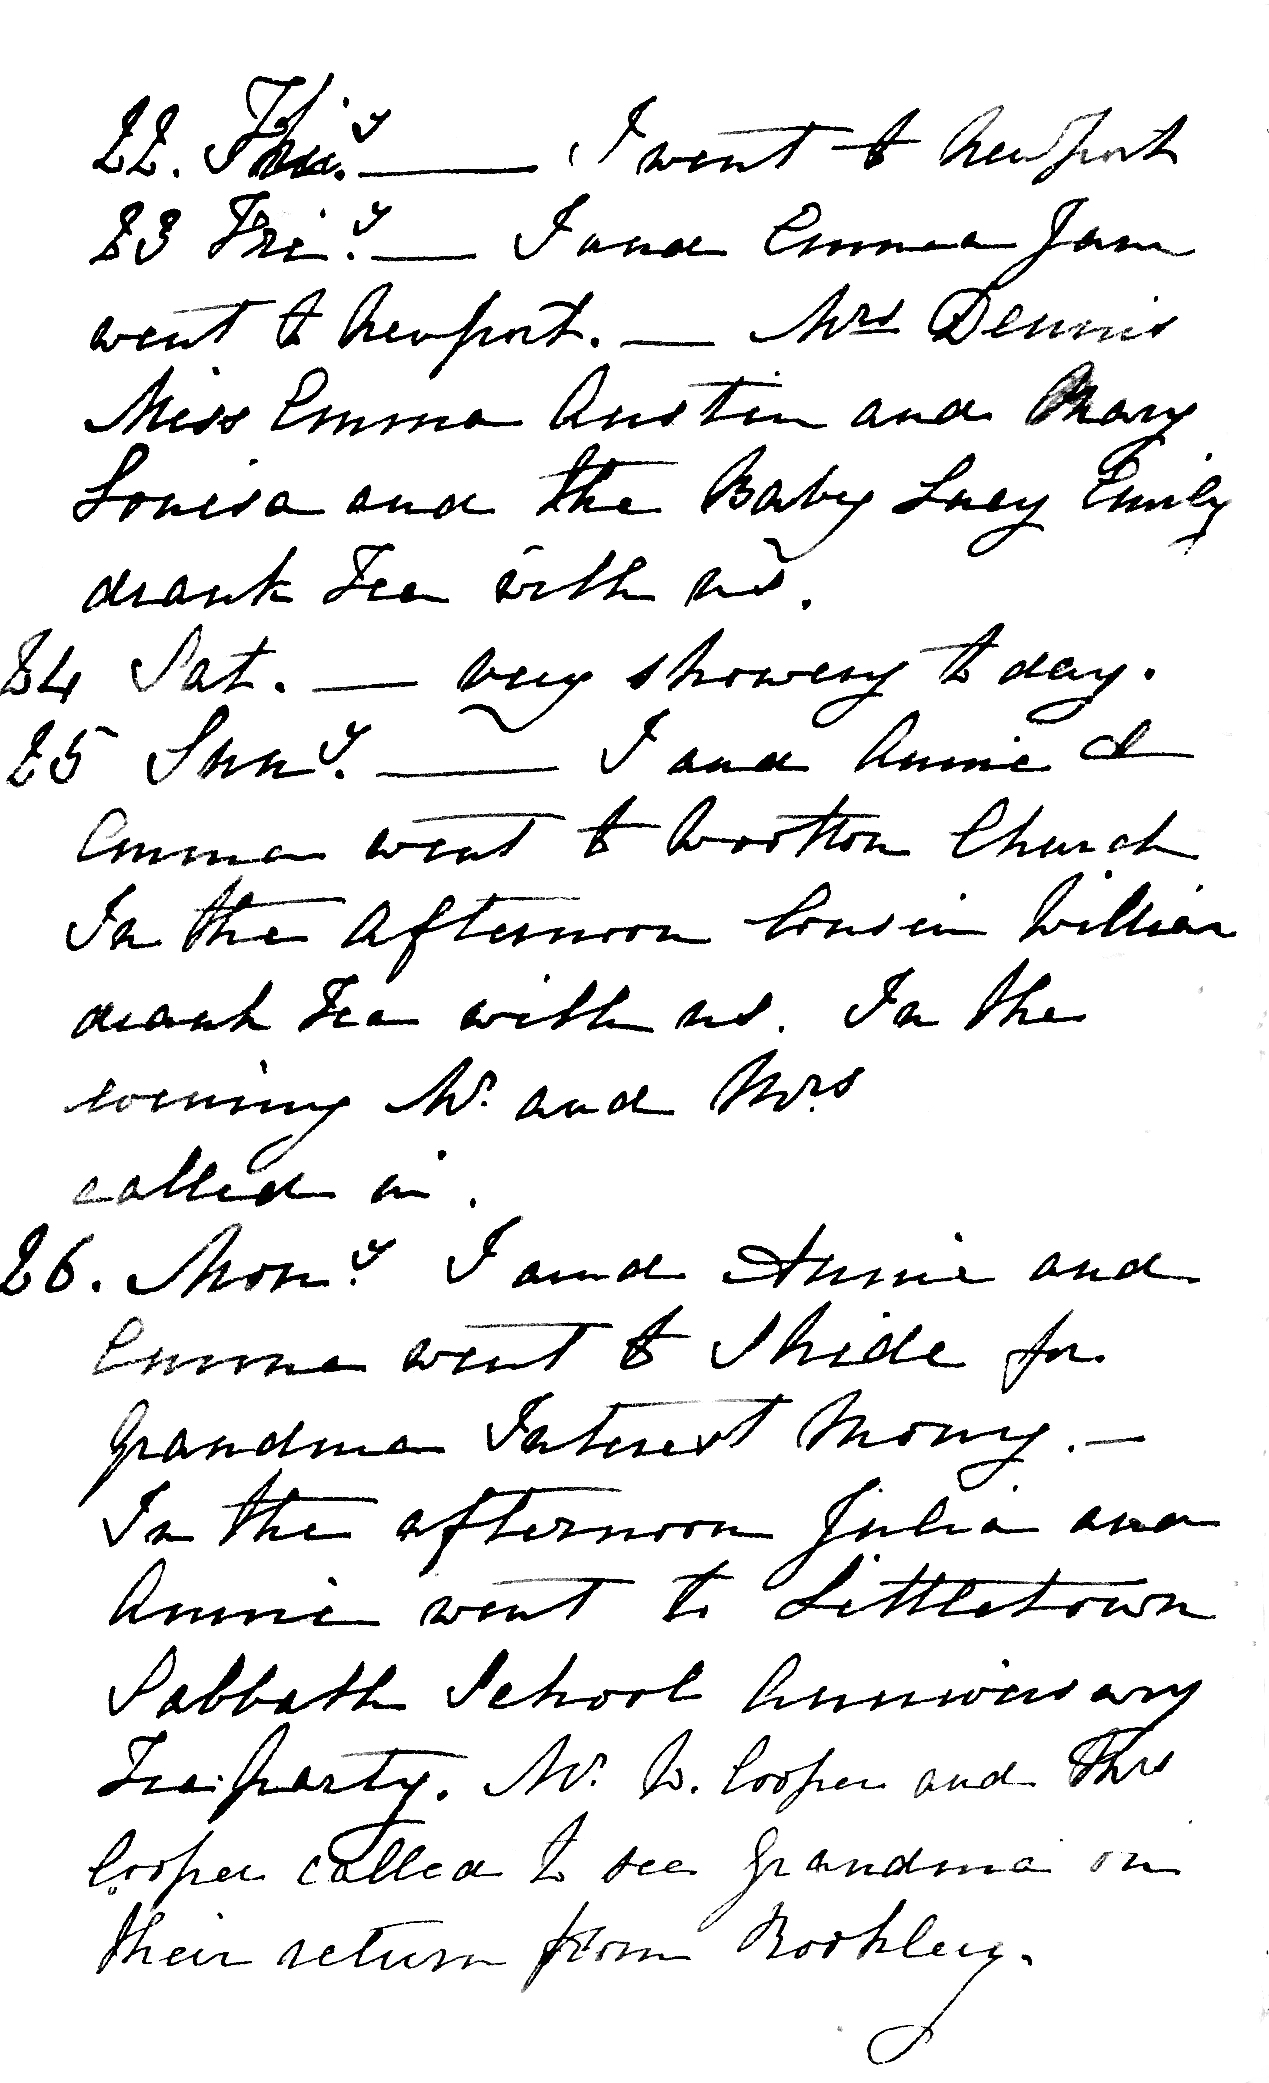 22. Thu.y — I went to Newport
23 Fri.y — I and Emma Jane
went to Newport. — Mrs Dennis
Miss Emma Austin and Mary
Louisa and the Baby Lucy Emily
drank Tea with us.
24 Sat. — very showery to day.
25 Sun.y — I and Annie &
Emma went to Wootton Church
In the Afternoon Cousin William
drank Tea with us. In the
evening Mr. and Mrs
called in.
26. Mon.y I and Annie and
Emma went to Shide for
Grandma Interest Money. —
In the afternoon Julia and
Annie went to Littletown
Sabbath School Anniversary
Tea:party. Mr. W. Cooper and Mrs
Cooper called to see Grandma on
their return from Rookley.